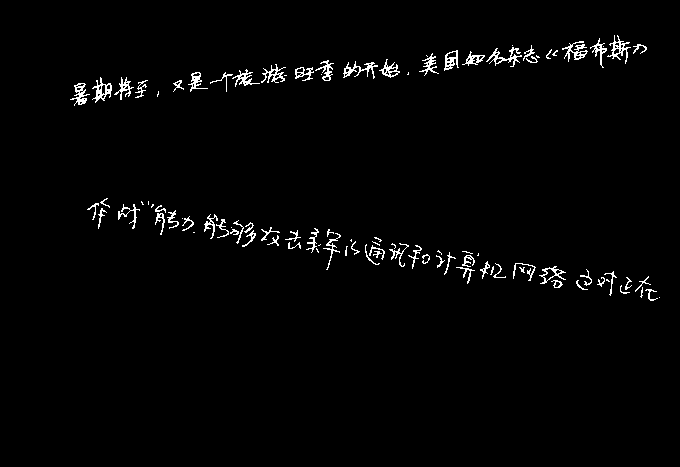 暑期将至,又是一个旅游旺季的开始.美国知名杂志《福布斯》
作战"能力.能够攻击美军的通讯和计算机网络这对正在